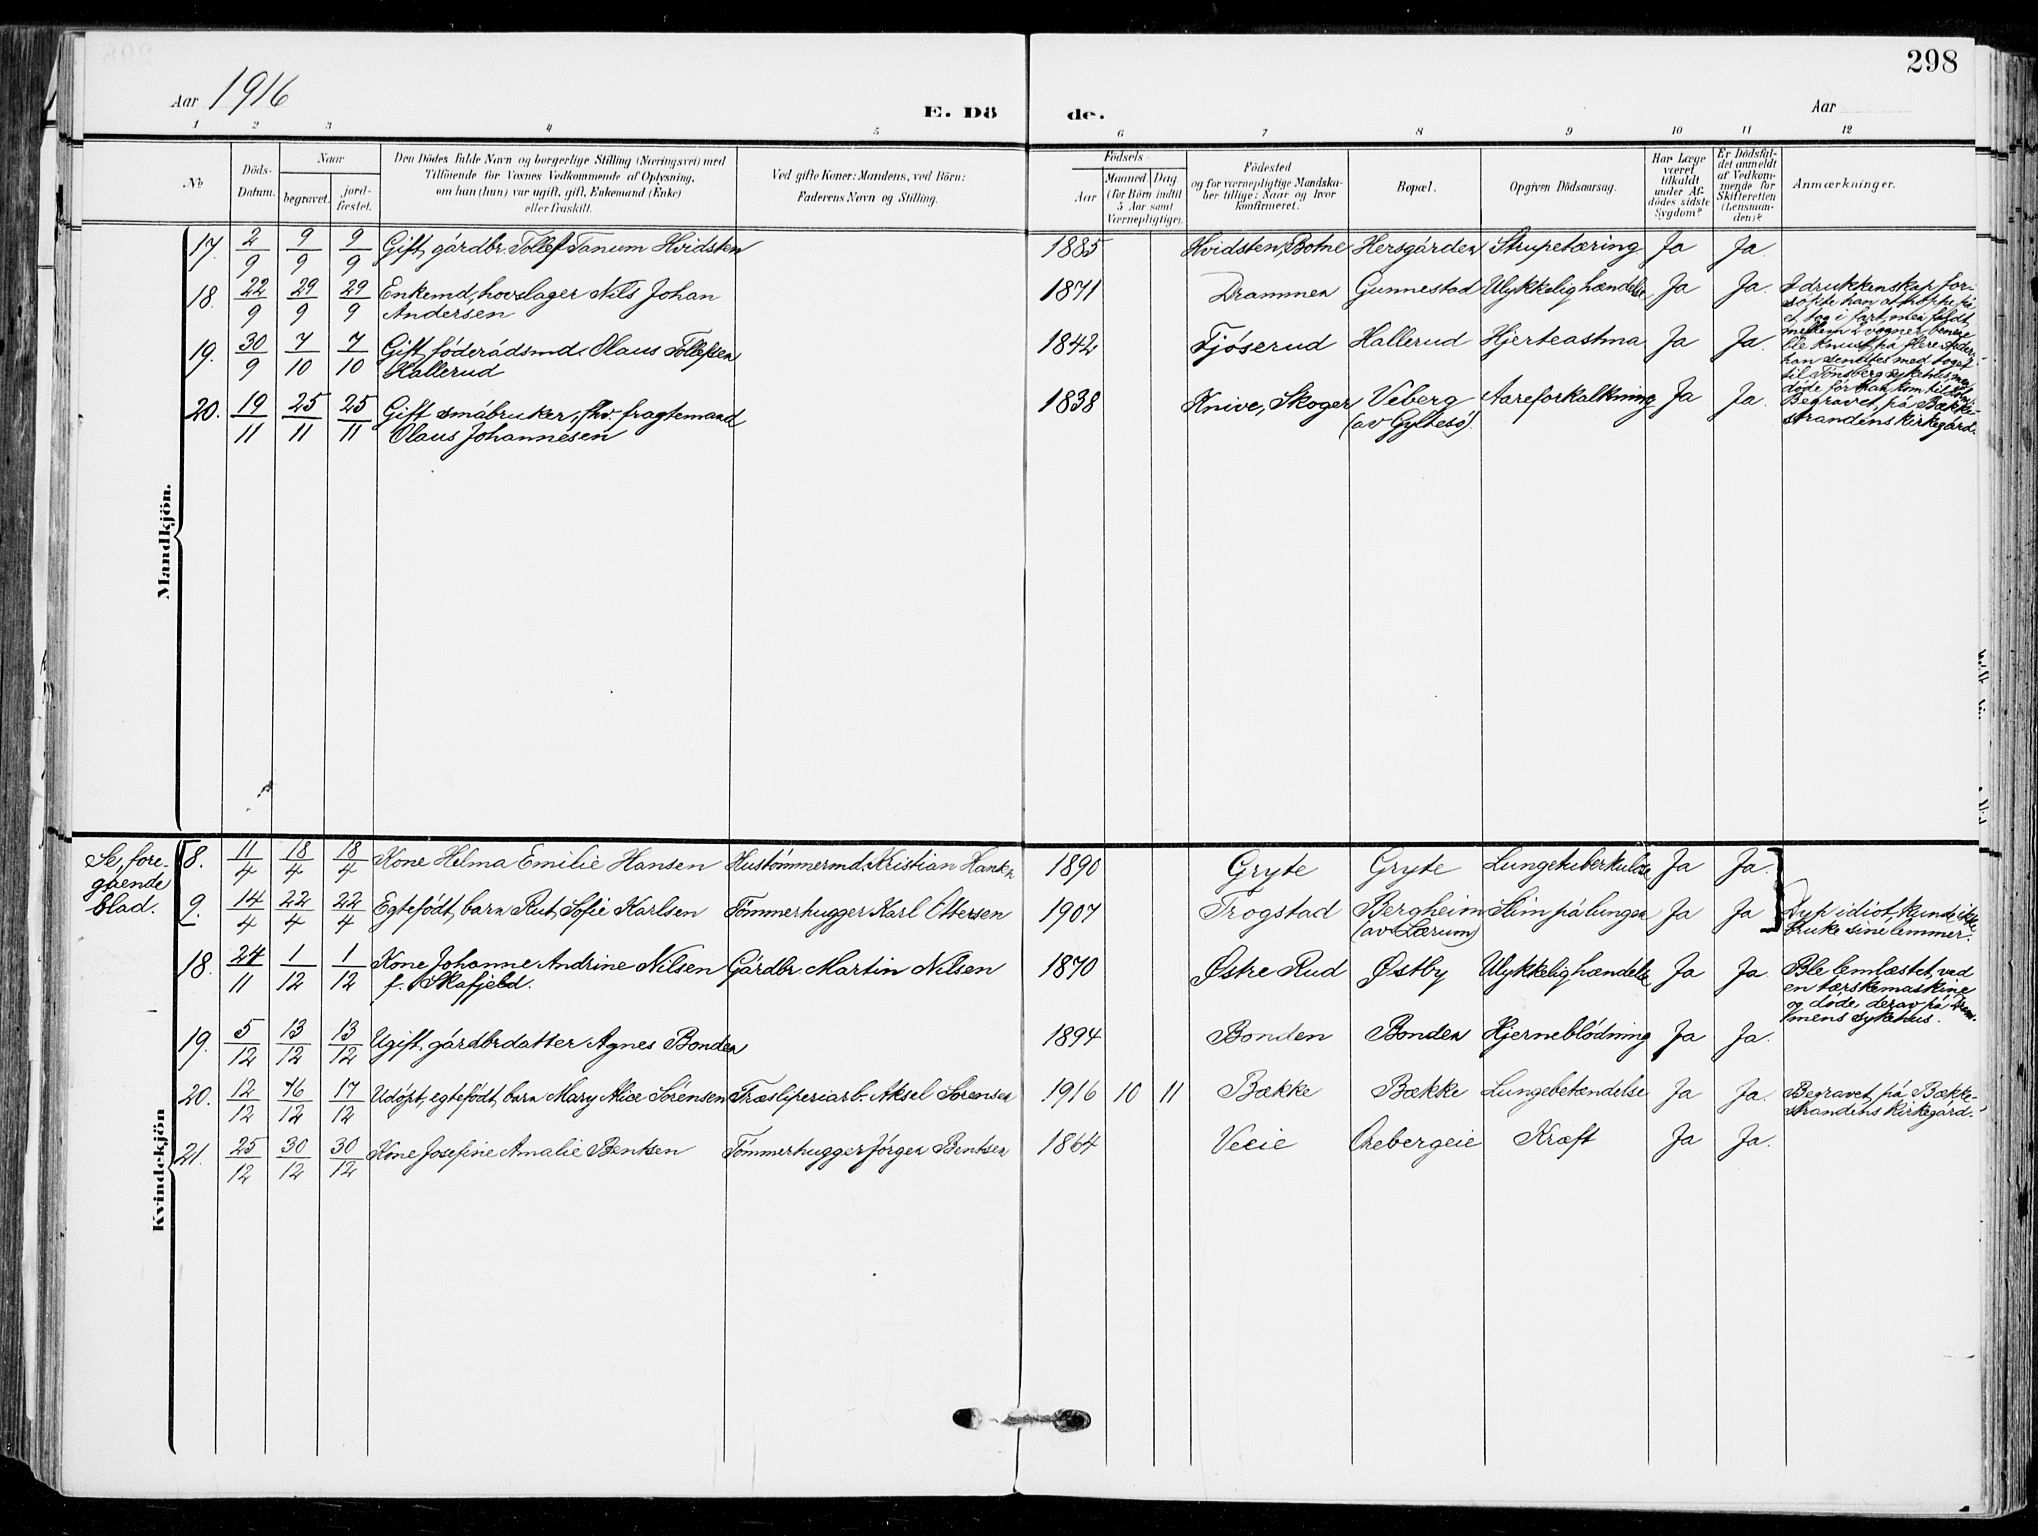 298
Aar 1916
E. Dö
de.
Aar
1 2 3 4 5 6 7 8 9 10 11 12
No
Döds-
Datum.
Naar
begravet.
jord-
fæstet.
Den Dödes fulde Navn og borgerlige Stilling (Næringsvei) med
Tilföiende for Voxnes Vedkommende af Oplysning,
om han (hun) var ugift, gift, Enkemand (Enke)
eller fraskilt.
Ved gifte Koner: Mandens, ved Börn:
Faderens Navn og Stilling.
Födsels-
Aar
Maaned Dag
(for Börn indtil
5 Aar samt
Værnepligtige).
Födested
og for værnepligtige Mandska-
ber tillige: Naar og hvor
konfirmeret.
Bopæl.
Opgiven Dödsaarsag.
Har Læge
været
tilkaldt
under Af-
dödes sidste
Sygdom?
Er Dödsfal-
det anmeldt
af Vedkom-
mende for
Skifteretten
(Lensman-
den)?
Anmærkninger.
Mandkjön.
17. 2/9 9/9 9/9 Gift, gårdbr. Tollef Tanum Hvidsten 1885 Hvidsten, Botne Hersgården Strupetæring Ja Ja.
18. 22/9 29/9 29/9 Enkemd, hovslager Nils Johan
Andersen 1871 Drammen Gunnestad Ulykkelig hændelse Ja Ja.
I drukkenskap for-
søkte han at hoppe på
et tog i fart, men faldt
mellem 2 vogner, benene
ble knust på flere steder;
han sendtes med toget
til Tønsberg sykehus men
døde før han kom til
19. 30/9 7/10 7/10 Gift, föderådsmd. Olaus Tollefsen
Hallerud 1842 Tjöserud Hallerud Hjerteastma Ja Ja.
20. 19/11 25/11 25/11 Gift småbruker, fhv. fragtemand
Olaus Johannesen 1838 Knive, Skoger Veberg
(av Gyltesö). Aareforkalkning Ja Ja.
Begravet på Bække-
strandens kirkegård.
Kvindekjön
Se, fore-
gående
blad.
8. 11/4 18/4 18/4 Kone Helma Emilie Hansen Hustömmermd. Kristian Hansen 1890 Gryte Gryte Lungetuberkulose Ja Ja.
9. 14/4 22/4 22/4 Egtefödt barn Rut Sofie Karlsen Tömmerhugger Karl Ottersen 1907 Trogstad Bergheim
(av Lærum) Slim på lungen Ja Ja
Dyp idiot, kunde ikke
bruke sine lemmer.
18. 24/11 1/12 1/12 Kone Johanne Andrine Nilsen
f. Skafjeld. Gårdbr. Martin Nilsen 1870 Østre Rud Østby Ulykkelig hændelse Ja Ja.
Ble lemlæstet ved
en tærskemaskine
og døde derav på Dram-
mens sykehus.
19. 5/12 13/12 13/12 Ugift, gårdbrdatter Agnes Bonden 1894 Bonden Bonden Hjerneblödning Ja Ja.
20. 12/12 16/12 17/12 Udöpt, egtefödt, barn Mary Alice Sörensen Træsliperiarb. Aksel Sörensen 1916 10 11 Bække Bække Lungebetændelse Ja Ja.
Begravet på Bække-
strandens kirkegård.
21. 25/12 30/12 30/12 Kone Josefine Amalie Bentsen Tömmerhugger Jörgen Bentsen 1864 Veeie Orebergeie Kræft Ja Ja.